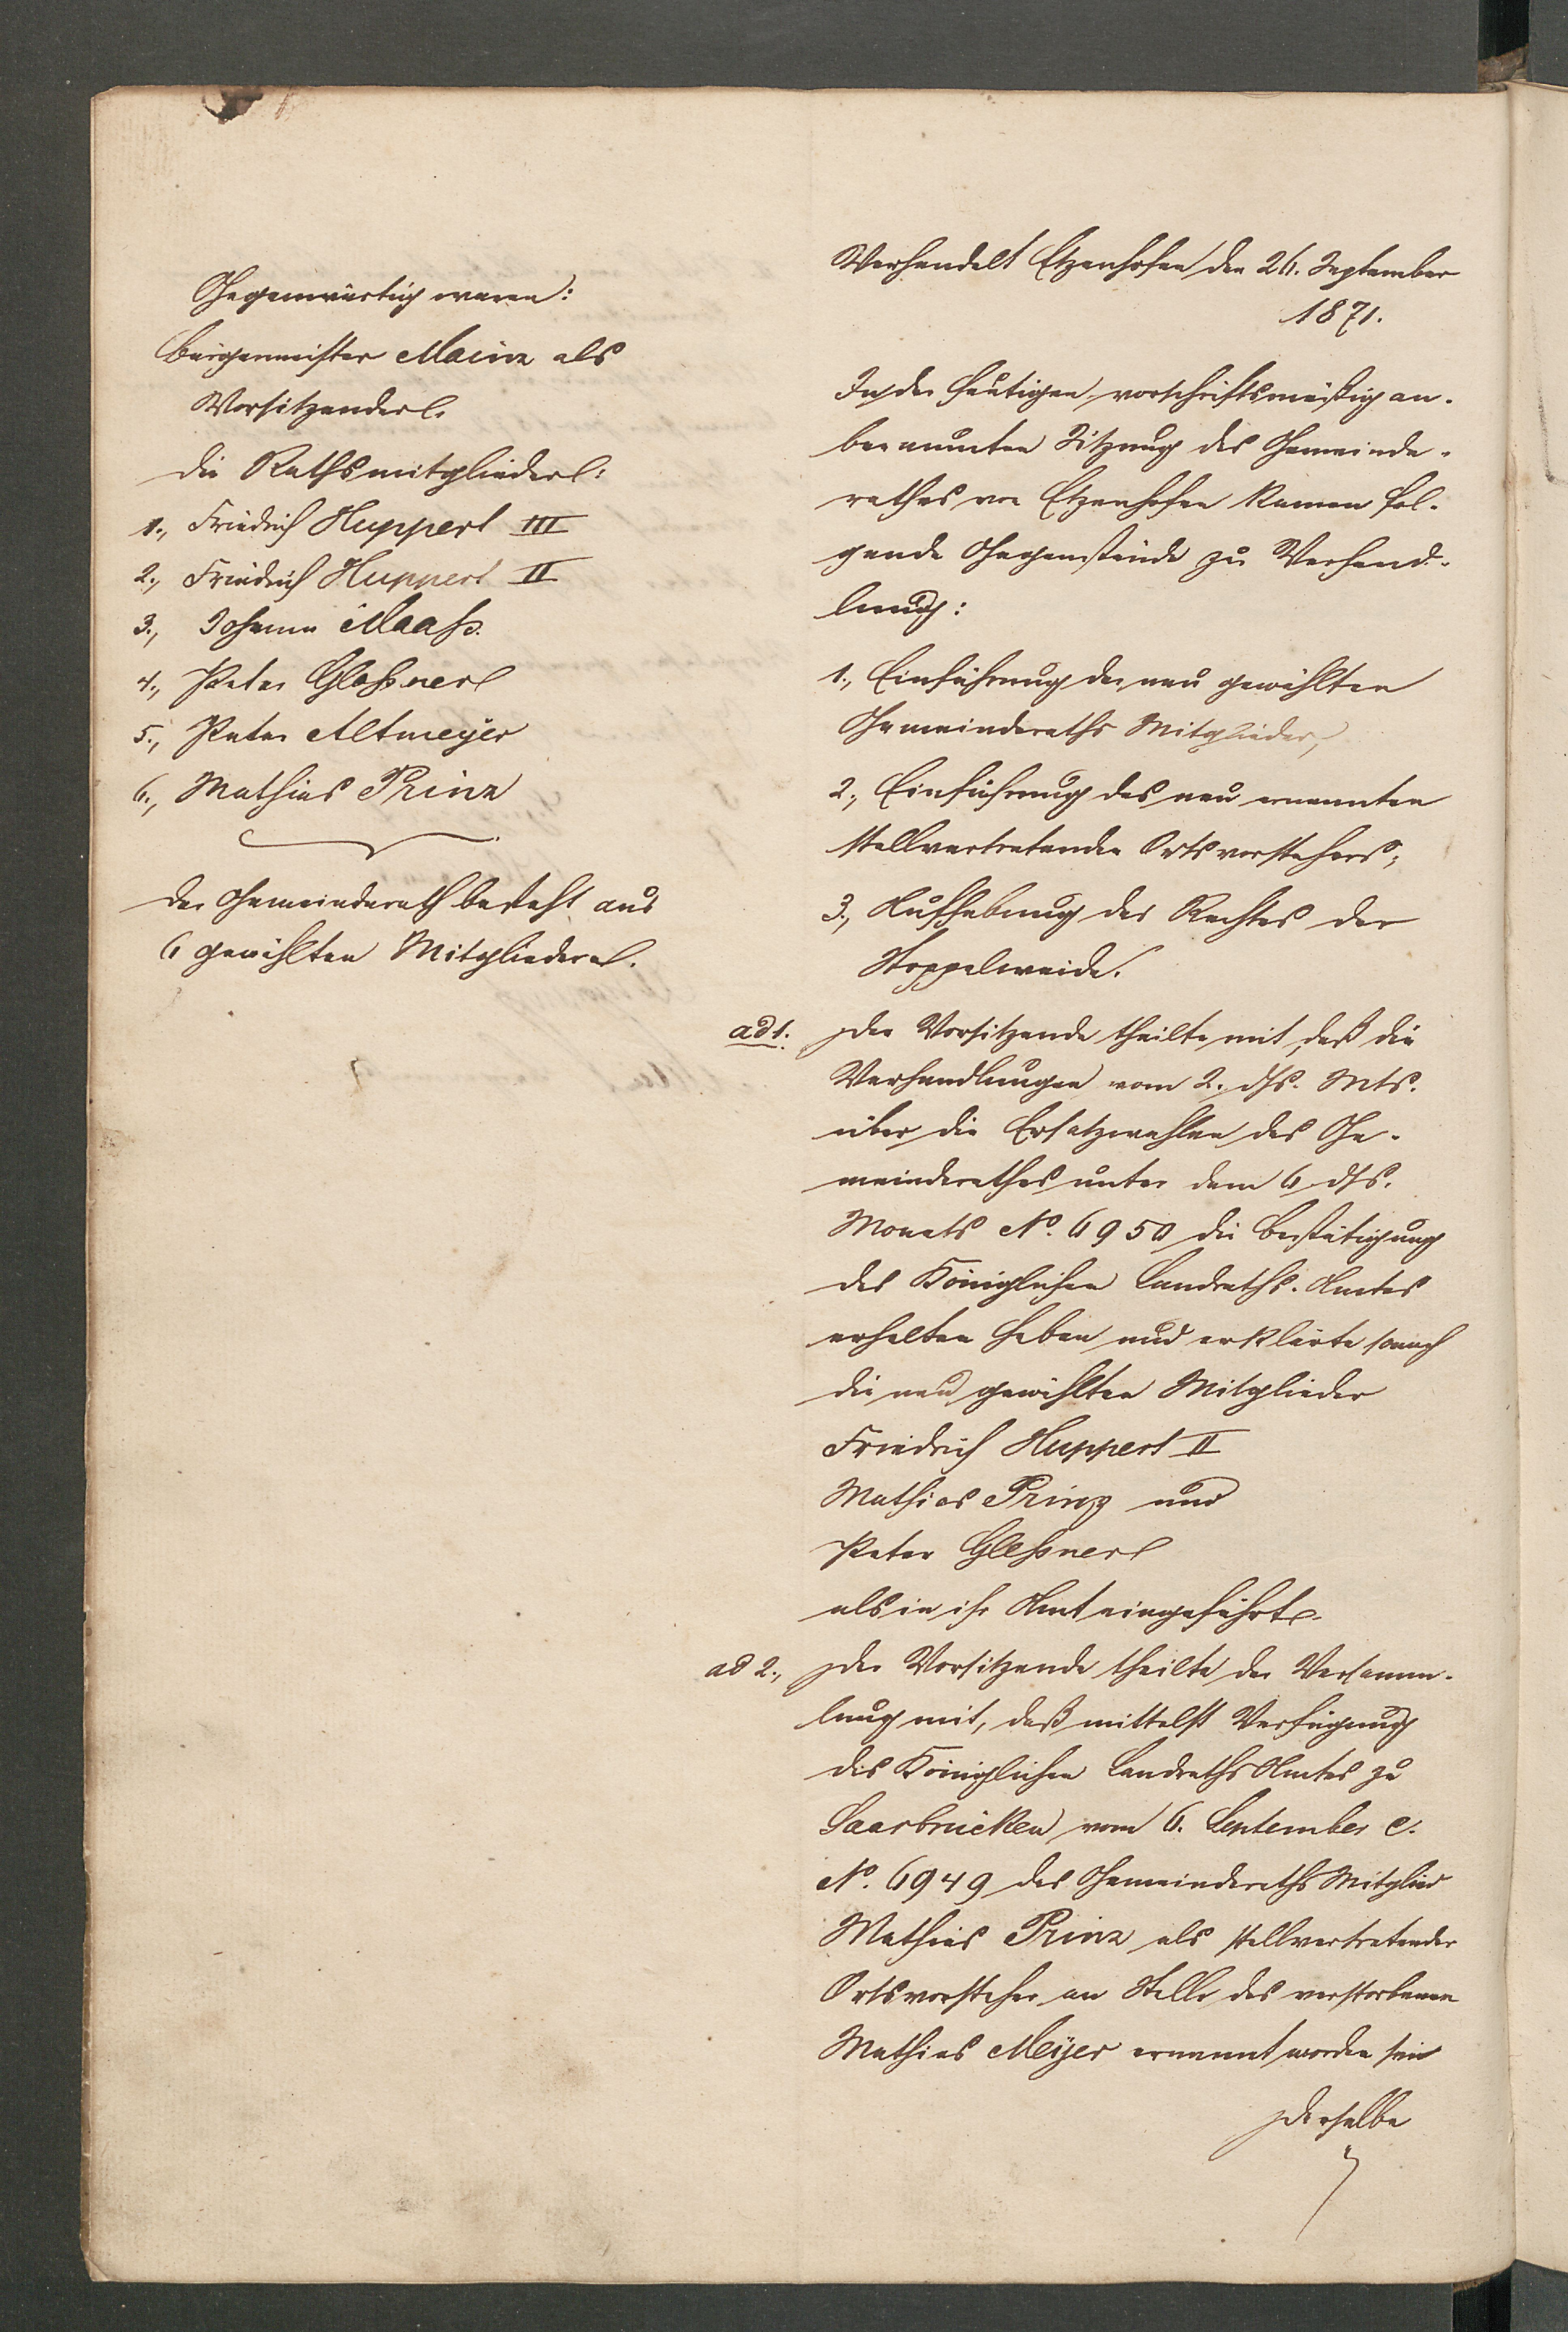 Gegenwärtig waren:
Bürgermeister Mainz als
Vorsitzender.
die Rathsmitglieder:
1., Friedrich Huppert III
2., Friedrich Huppert II
3., Johann Maaß.
4., Peter Gleßner
5., Peter Altmeyer
6., Mathias Prinz
Der Gemeinderath besteht aus
6 gewählten Mitgliedern.
Verhandelt Etzenhofen den 26. September
1871.
In der heutigen, vorschriftsmäßig an-
beraumten Sitzung des Gemeinde-
rathes von Etzenhofen kamen fol-
gende Gegenstände zu Verhand-
lung:
1., Einführung der neu gewählten
Gemeinderaths Mitglieder,
2., Einführung des neu ernannten
stellvertretenden Ortsvorstehers;
3., Aufhebung des Rechtes der
Stoppelweide.
ad 1. Der Vorsitzende theilte mit, daß die
Verhandlungen vom 2. dss. Mts.
über die Ersatzwahlen des Ge-
meinderathes unter dem 6 dss.
Monats No. 6950 die Bestätigung
des Königlichen Landraths-Amtes
erhalten haben und erklärte sonach
die neu gewählten Mitglieder
Friedrich Huppert II
Mathias Prinz und
Peter Gleßner
als in ihr Amt eingeführt.
ad 2., Der Vorsitzende theilte der Versamm-
lung mit, daß mittelst Verfügung
des Königlichen Landraths Amtes zu
Saarbrücken vom 6. September c.
No. 6949 das Gemeinderaths Mitglied
Mathias Prinz als stellvertretender
Ortsvorsteher an Stelle des verstorbenen
Mathias Meyer ernannt worden sei
Derselbe